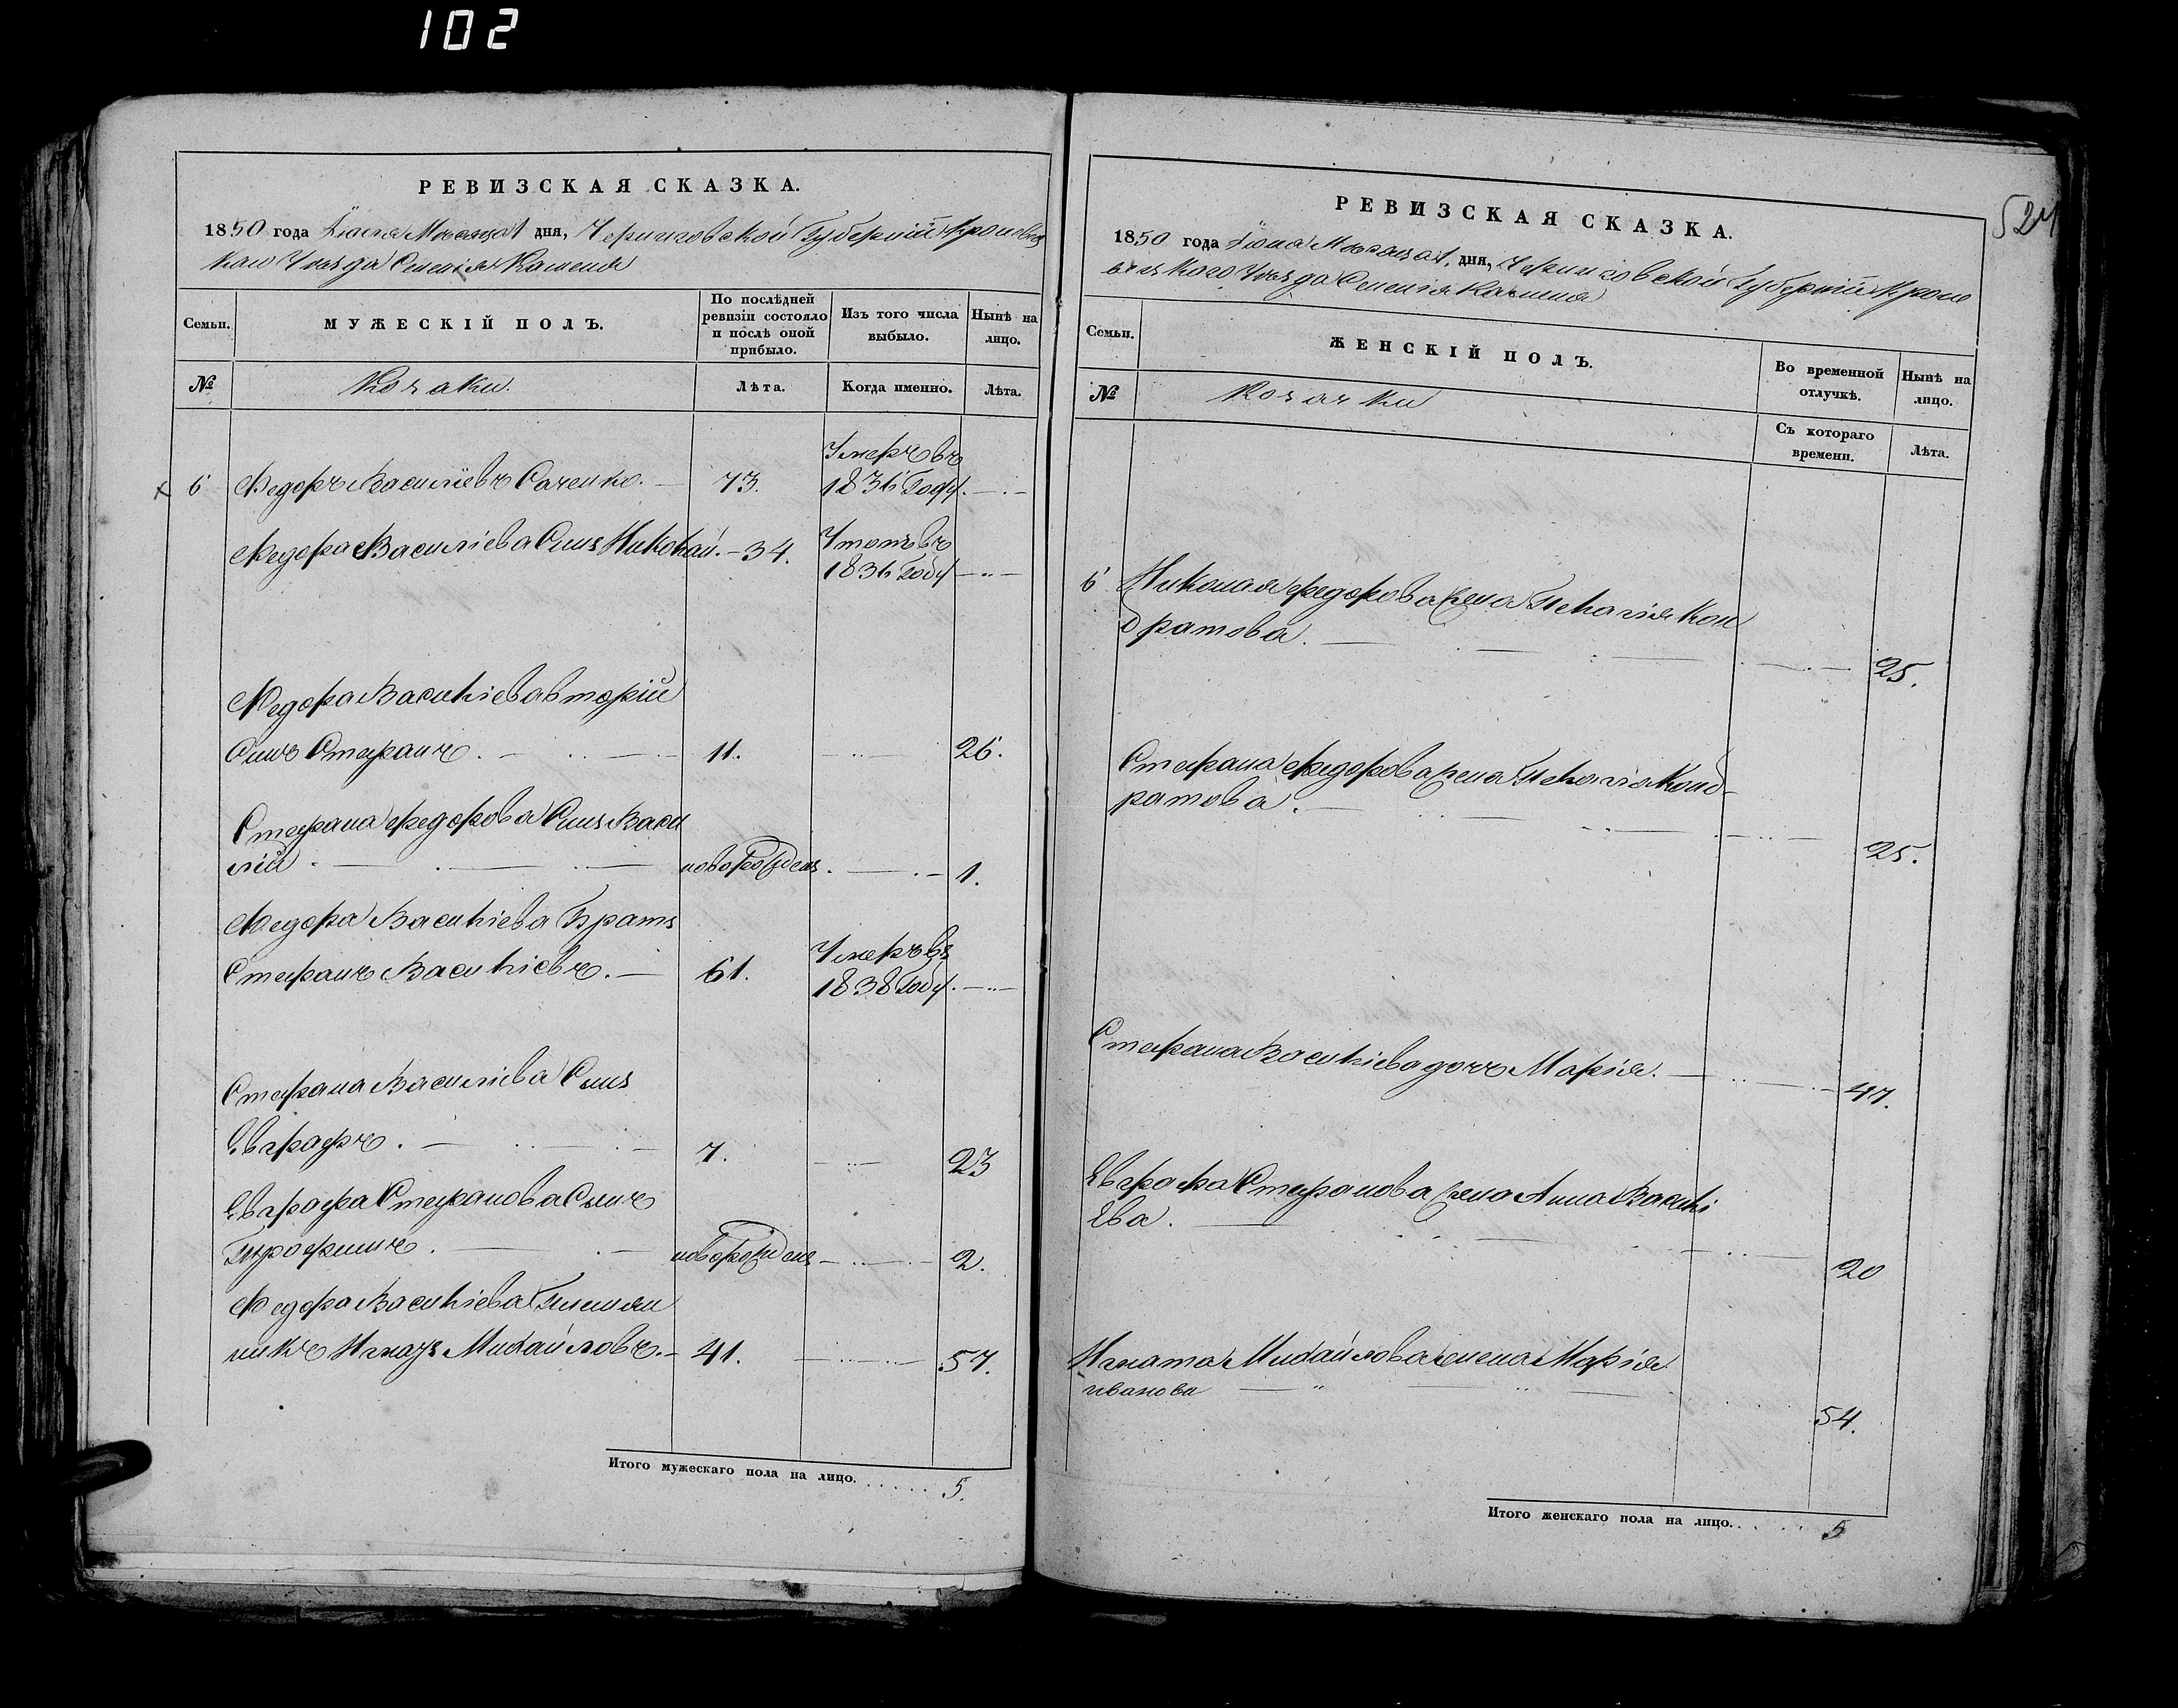 102
РЕВИЗСКАЯ СКАЗКА.
1850 года Іюля Месяца 1 дня, Черниговской Губерніи Кролевец
каго Уезда Селенія Каменя
Семьи.
МУЖЕСКІЙ ПОЛЪ.
По послѣдней
ревизіи состояло
и послѣ оной
прибыло.
Изъ того числа
выбыло.
Нынѣ на
лицо.
№
Козаки.
Лѣта.
Когда именно.
Лѣта.
Умеръ въ
6 Федоръ Василіевъ Саченко. 73. 1836 Году.
Федора Василіева Синъ Николай. 34. Утопъ въ
1836 Году
Федора Василіева вторій
Синъ Стефанъ. 11. 26.
Стефана Федорова Синъ Васи
лій новорожденъ. 1.
Федора Василіева Братъ
Стефанъ Василіевъ. 61. Умеръ въ
1838 Году.
Стефана Василіева Синъ
Евграфъ. 7. 23
Евграфа Стефанова Синъ
новорожденъ 2.
Федора Василіева Племян
никъ Игнатъ Михайловъ. 41. 57.
Итого мужескаго пола на лицо. 5.
524
РЕВИЗСКАЯ СКАЗКА.
1850 года Іюля Месяца 1. дня, Черниговской Губерніи Кроле
вецкаго Уезда Селенія Каменя
Семьи.
ЖЕНСКІЙ ПОЛЪ.
Во временной
отлучкѣ.
Нынѣ на
лицо.
№
Козачки
Съ котораго
времени.
Лѣта.
6 Николая Федорова жена Пелагія Кон
дратова. 25.
Стефана Федорова жена Пелагія Конд-
ратова. 25.
Стефана Василіева дочь Марія. 47.
Евграфа Стефанова жена Анна Василі
ева. 20
Игната Михайлова жена Марія
иванова 54.
Итого женскаго пола на лицо. 5